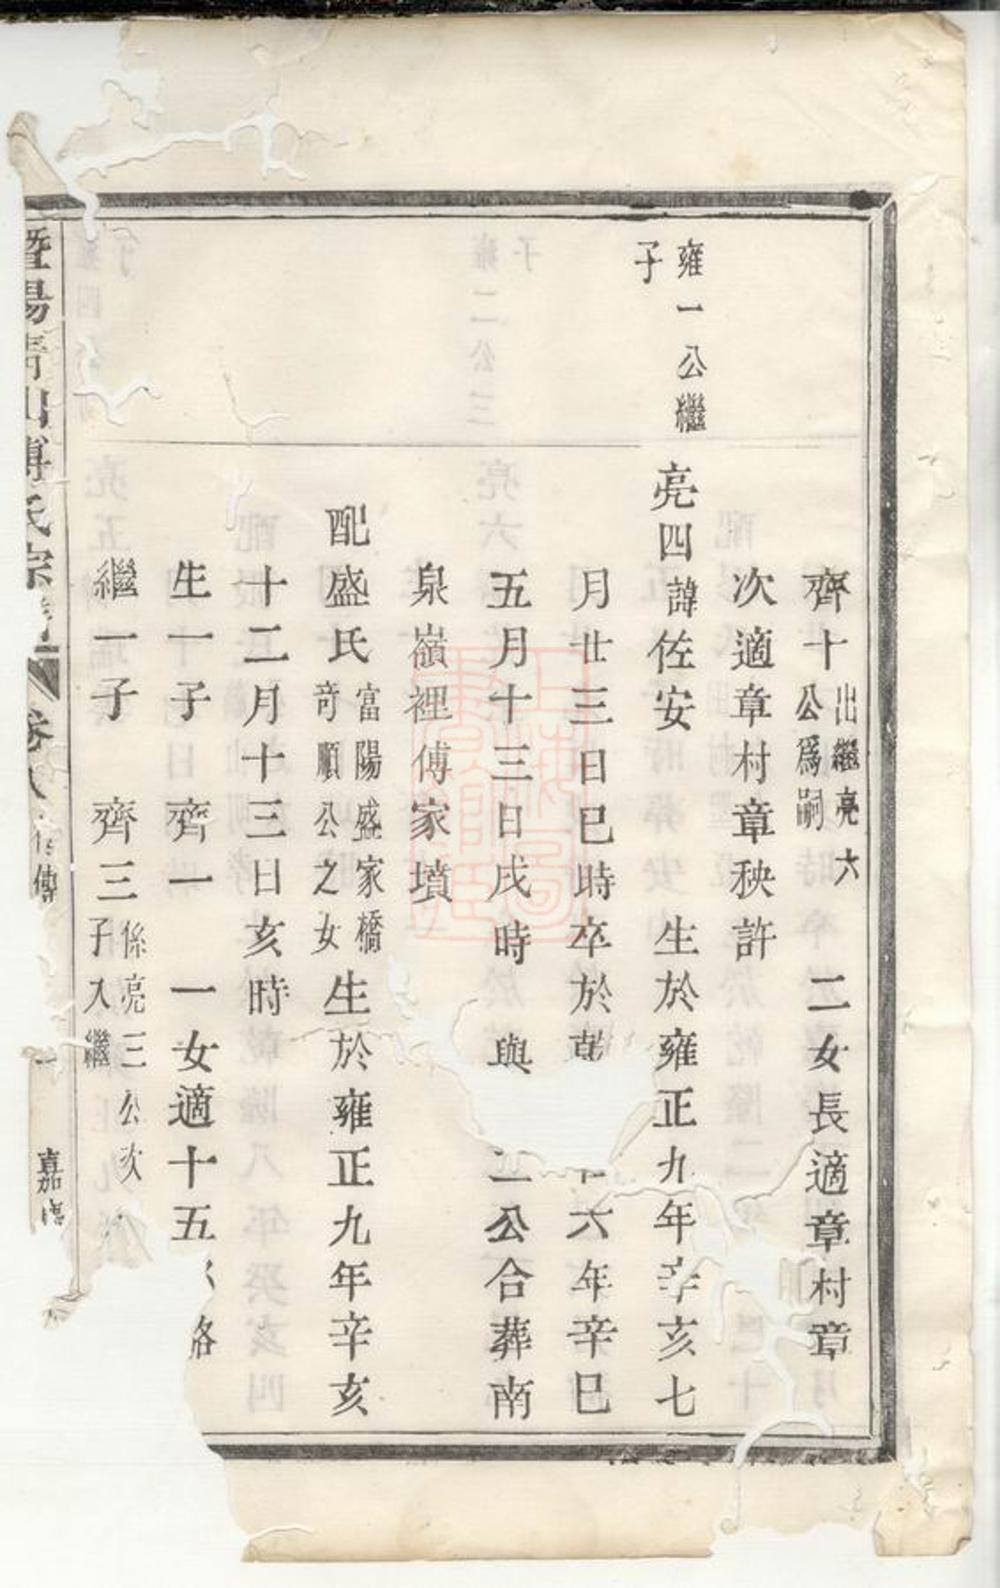 齊十 出繼亮六公爲嗣 二女長適章村章
次適章村章秧許
雍一公繼子
亮四諱佐安 生於雍正九年辛亥七
月廿三日巳時卒於乾 六年辛巳
五月十三日戌時 與 二公合葬南
泉嶺裡傅家墳
配盛氏 富陽盛家橋奇順公之女 生於雍正九年辛亥
十二月十三日亥時
生一子 齊一 一女適十五
繼一子 齊三 係亮三公次子入繼
暨陽青山傅氏宗譜 卷八 傳 嘉